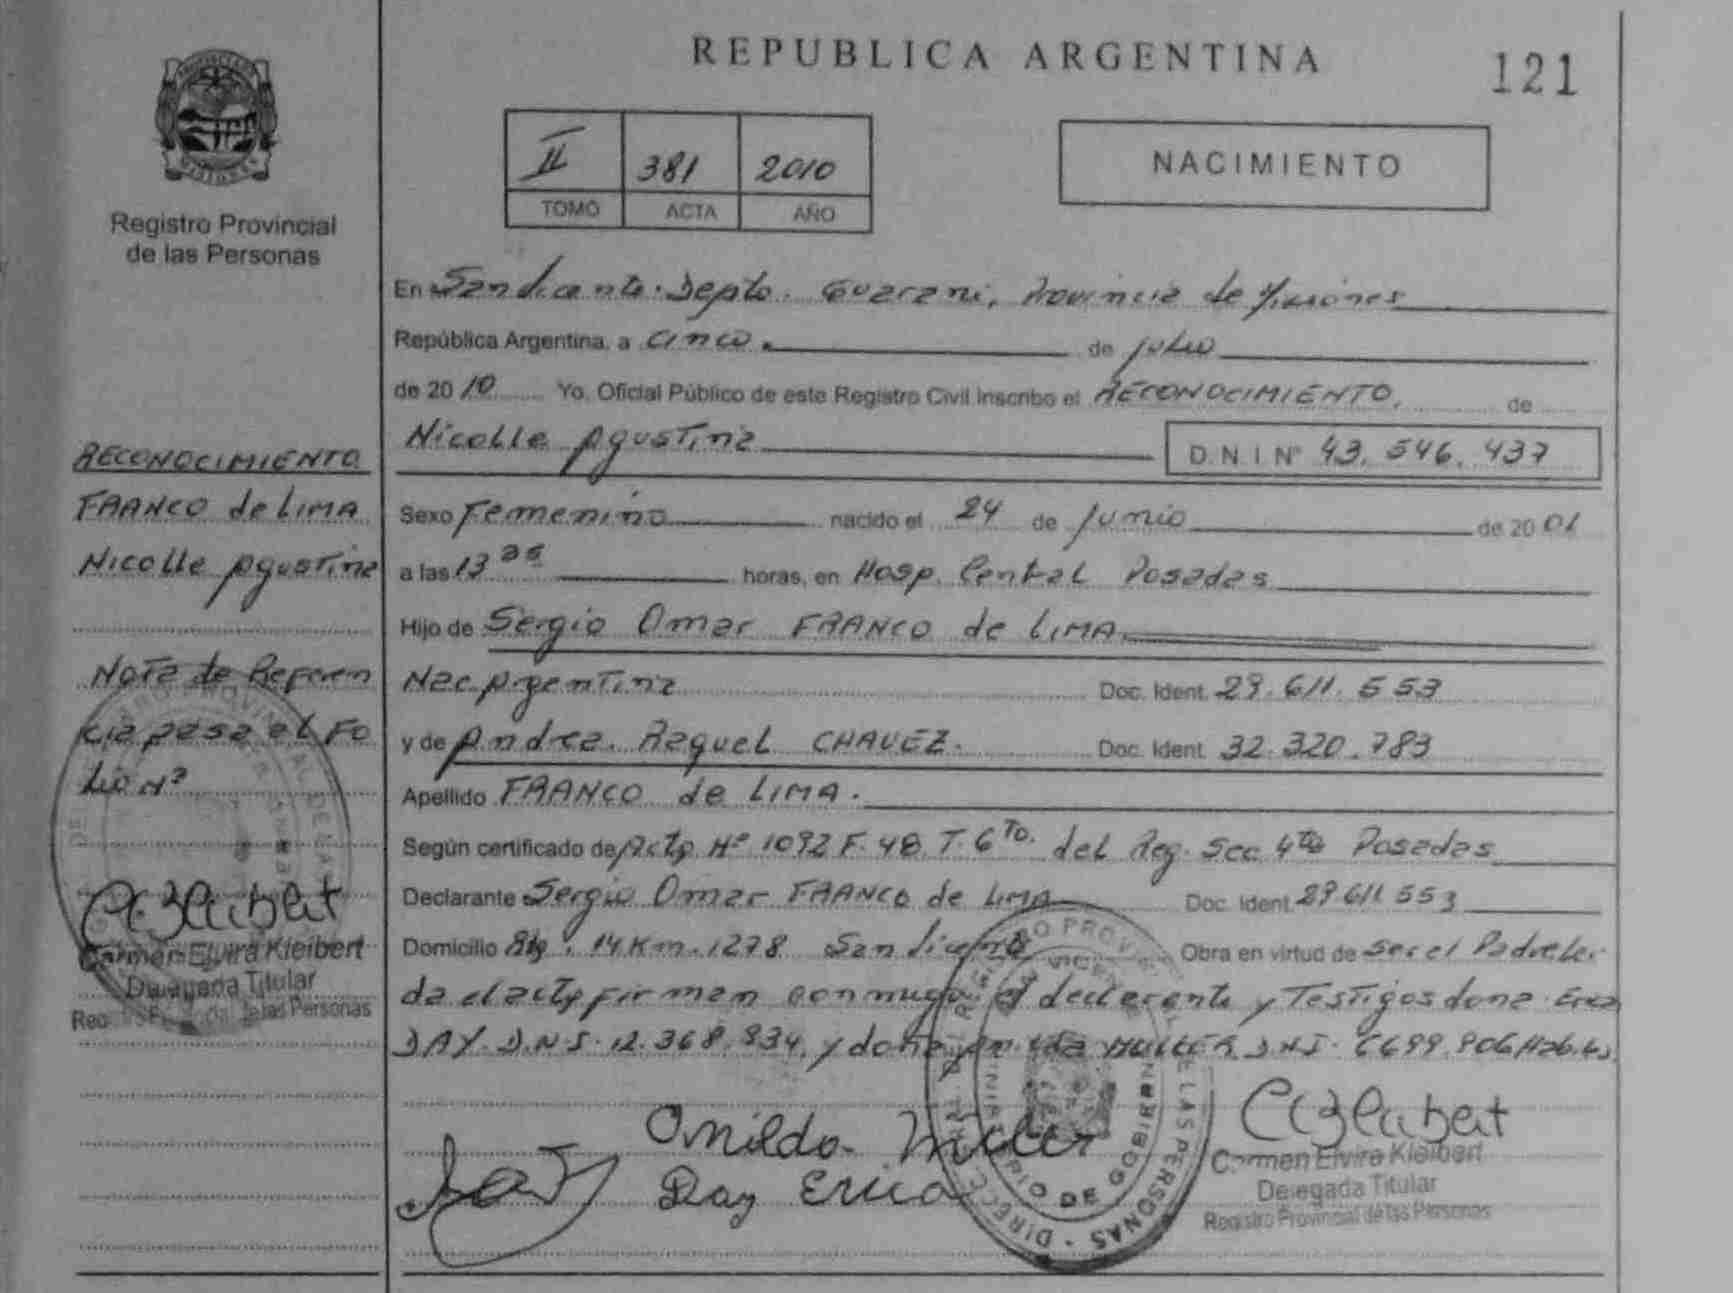 REPUBLICA ARGENTINA
121
II 381 2010
TOMO ACTA AÑO
NACIMIENTO
Registro Provincial
de las Personas
RECONOCIMIENTO
FRANCO de LIMA
Nicolle Agustina
Nota de Referen
cia pasa al Fo
lio Nº
Carmen Elvira Kleibert
Delegada Titular
de las Personas
En San Vicente. Depto. Guarani, Provincia de Misiones
República Argentina, a cinco. de julio
de 2010 Yo, Oficial Público de este Registro Civil inscribo el RECONOCIMIENTO, de
Nicolle Agustina D.N.I. Nº 43.546.437
Sexo Femenino nacido el 24 de junio de 2001
a las 13 horas, en Hosp. Central Posadas
Hijo de Sergio Omar FRANCO de LIMA
Nac Argentina Doc. Ident. 29.611.553
y de Andrea Raquel CHAVEZ. Doc. Ident. 32.320.783
Apellido FRANCO de LIMA.
Según certificado de Acta Nº 1092 F. 48 T. 6to. del Reg. Sec 4ta Posadas
Declarante Sergio Omar FRANCO de LIMA Doc. Ident. 29 611 553
Domicilio 14 Km. 1278 San Vicente Obra en virtud de ser el Padre Lei
da el acta firman conmigo el declarante y Testigos dona Erica
DAY. D.N.I. 12.368.834, y dona MULLER D.N.I. 6699.906
Onildo Muller
Day Erica
Carmen Elvira Kleibert
Delegada Titular
Registro Provincial de las Personas